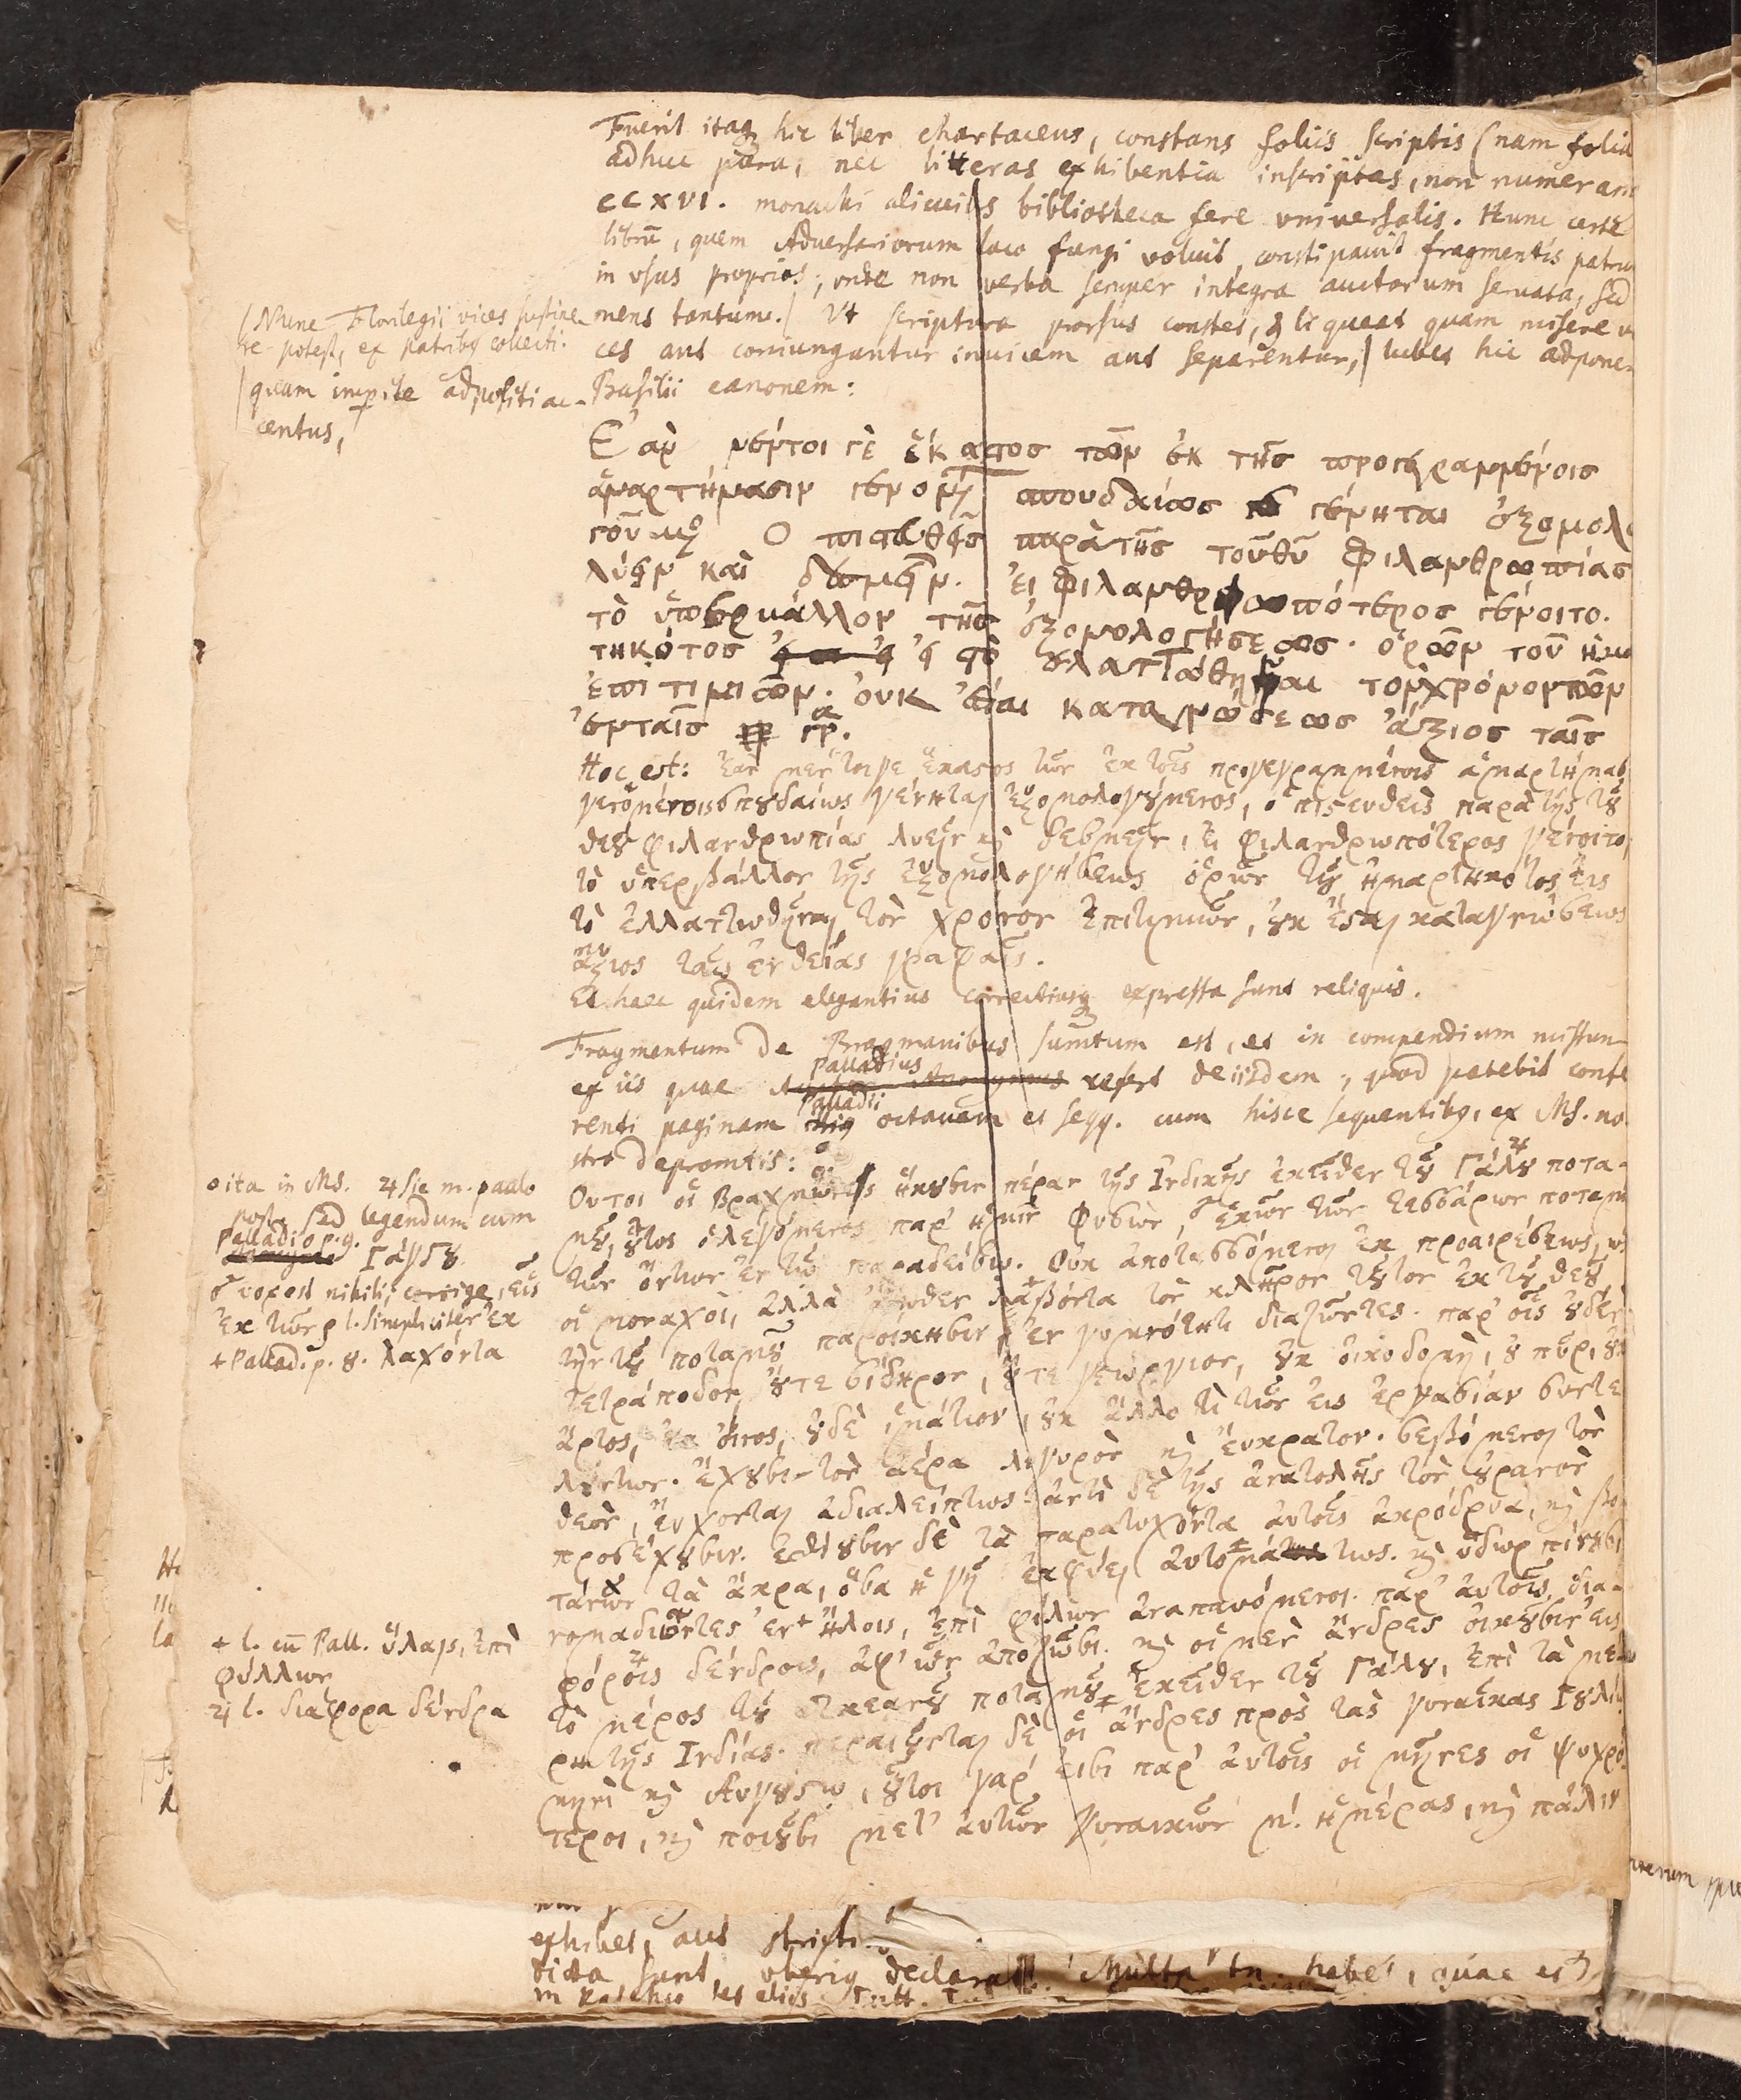 Fuerit itaq; hic liber chartaceus, constans foliis scriptis (nam folia
adhuc pura, nec litteras exhibentia inscriptas, non numeram
CCXVI. monachi alicuius bibliotheca fere vniversalis. Hunc certe
librū, quem Adversariorum loco fungi voluit, constipavit fragmentis patru
in vsus proprios; vnde non verba semper integra auctorum servata, sed
mens tantum. Vt scriptura prorsus constet, & liqueat quam misere v
ces aut coniungantur invicem aut separentur, lubet hic adpone
Basilii canonem:
(Nunc Florilegii vices sustine-
re potest, ex patribq collecti.
quam imperite adpositi ac-
centus,
Ἐὰν μέντοι γὲ ἕκαστος τῶν ἐκ τῆς προγεγραμμένοις
ἁμαρτήμασιν σπουδαίως γένηται ἐξομολ
Ὁ πιστευθεὶς παρὰ τῆς τοῦ θῦ Φιλανθρωπίας
λύειν καὶ δεσμεῖν. εἰ Φιλανθρωπότερος γένοιτο.
τὸ ὑπερβάλλον τῆς ἐξομολογήσεως. ὁρῶν τοῦ ἡμα
τηκότος εἰς τὸ ἐλαττωθῆναι τὸν χρόνον τῶν
ἐπιτιμιῶν. οὐκ ἔσται καταγνώσεως ἄξιος ταῖς
ἐνταῖς
Hoc est: Ἐὰν μέν τοιγε ἕκαστος τῶν ἐκ τοῖς προγεγραμμένοις ἁμαρτήμασ
γενομένοις σπȣδαίως γένηται ἐξομολογȣ́μενος, ὁ πιστευθεὶς παρὰ τῆς τȣ͂
θεȣ͂ φιλανθρωπίας λύειν καὶ δεσμεῖν, εἰ φιλανθρωπότερος γένοιτο,
τὸ ὑπερβάλλον τῆς ἐξομολογήσεως ὁρῶν τȣ͂ ἡμαρτηκότος εἰς
τὸ ἐλλαττωθῆναι τὸν χρόνον ἐπιτιμιῶν, ȣ̓κ ἔσται καταγνώσεως
ἄξιος ταῖς ἐν θείαις γραφαῖς.
Et haec quidem elegantius correctiusq; expressa sunt reliquis.
Fragmentum de Bragmanibus sumtum est, et in compendium missum
ex iis quae Palladius refert de iisdem; quod patebit confe
renti paginam Palladii octavam et seqq. cum hisce sequentibq, ex MS. no-
stro depromtis:
Ουτοι οἱ Βραχμῶνες ἥκȣσιν πέραν τῆς Ἰνδικῆς ἐκεῖθεν τȣ͂ Γάλȣ ποτα-
μȣ͂, ȣ̓͂τος ὁ λεγόμενος παρ' ἡμῖν Φυσῶν, ἐκ ὧν τῶν τεσσάρων ποταμῶ
τῶν ὄντων ἐν τῷ παραδείσῳ. Οὐκ ἀποτασσόμενοι ἐκ προαιρέσεως, ὡς
οἱ μοναχοὶ, ἀλλὰ ἄνωθεν λαβόντα τὸν κλῆρον τȣ͂τον ἐκ τȣ͂ θεȣ͂,
τὴν τȣ͂ ποταμȣ͂ παροίκησιν, ἐν γυμνότητι διαζῶντες. παρ' οἷς ȣ̓δὲν
τετράποδον, ȣ̓́τε σίδηρον, ȣ̓́τε γεώργιον, ȣ̓κ οἰκοδομὴ, ȣ̓ πῦρ, ȣ̓κ
ἄρτος, ȣ̓κ οἶνος, ȣ̓δὲ ἱμάτιον, ȣ̓κ ἄλλο τὶ τῶν εἰς ἐργασίαν συντε
λȣ́ντων. Ἔχȣσι τὸν ἀέρα λιγυρὸν καὶ ἔυκρατον. σεβόμενοι τὸν
θεὸν, ἔυχονται ἀδιαλείπτως. ἀντὶ δὲ τῆς ἀνατολῆς τὸν ȣ̓ρανὸν
προσέχȣσιν. ἐσθίȣσιν δὲ τὰ παρατυχόντα ἀυτοῖς ἀκρόδρυα, καὶ βο
τάνων τὰ ἄκρα, ὅσα ἡ γῆ ἐκφύει ἀυτομάτως. καὶ ὕδωρ πίνȣσι
νομαδιῶντες ἐν + ἥλοις, ἐπὶ φίλων ἀναπαυόμενοι. παρ' ἀυτοῖς δια-
φόροις δένδροις, ἀφ' ὧν ἀποζῶσι. καὶ οἱ μὲν ἄνδρες οἰκȣ͂σιν εἰς
τὸ μέρος τȣ͂ ὠκεανȣ͂ ποταμȣ͂ ἐκεῖθεν τȣ͂ Γάλȣ, ἐπὶ τὰ μέ
ρη τῆς Ἰνδίας. περαιȣ͂νται δὲ οἱ ἄνδρες πρὸς τὰς γυναῖκας Ιȣλίῳ
μηνὶ καὶ Αυγȣ́στῳ, ȣ̓͂τοι γάρ εἰσι παρ' ἀυτοῖς οἱ μῆνες οἱ ψυχρό
τεροι, καὶ ποιȣ͂σι μετ' ἀυτῶν γυναικῶν μ. ἡμέρας, καὶ πάλιν
o ita in MS. ♃ sic m. paulo
post. sed legendum cum
Palladio p. 9.
Γάγγȣ.
σ vox est nihili, corrige, εἷς
ἐκ τῶν ρ l. simpliciter ἐκ
+ Pallad. p. 8. λαχόντα
+ l. cū Pall. ὕλαις, ἐπὶ
φύλλων
♃ l. διάφορα δένδρα
exhibet, aut
dicta sunt, vberiq declarat. Multa tn. habet, quae et